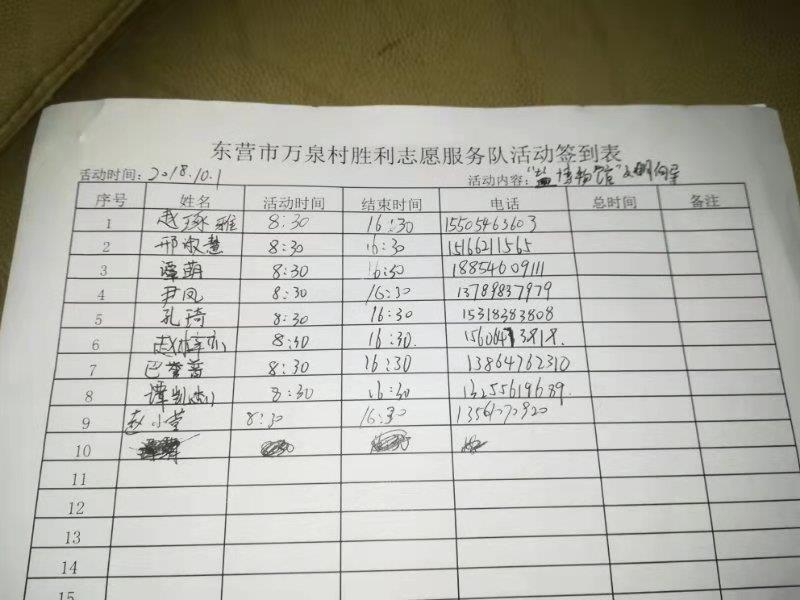 东营市万泉村胜利志愿服务队活动签到表
活动时间：2018.10.1 活动内容："盐博物馆"文明向导
序号 姓名 活动时间 结束时间 电话 总时间 备注
1 赵琢雅 8:30 16:30 15505463603
2 邢淑慧 8:30 16:30 15166211565
3 谭萌 8:30 16:30 18854609111
4 尹凤 8:30 16:30 13789837979
5 孔琦 8:30 16:30 15318383808
6 赵 8:30 16:30.
7 巴 8:30 16:30 13864762310
8 谭凯 8:30 16:30 13255619689.
9 赵小莹 8:30 16:30
10
11
12
13
14
15